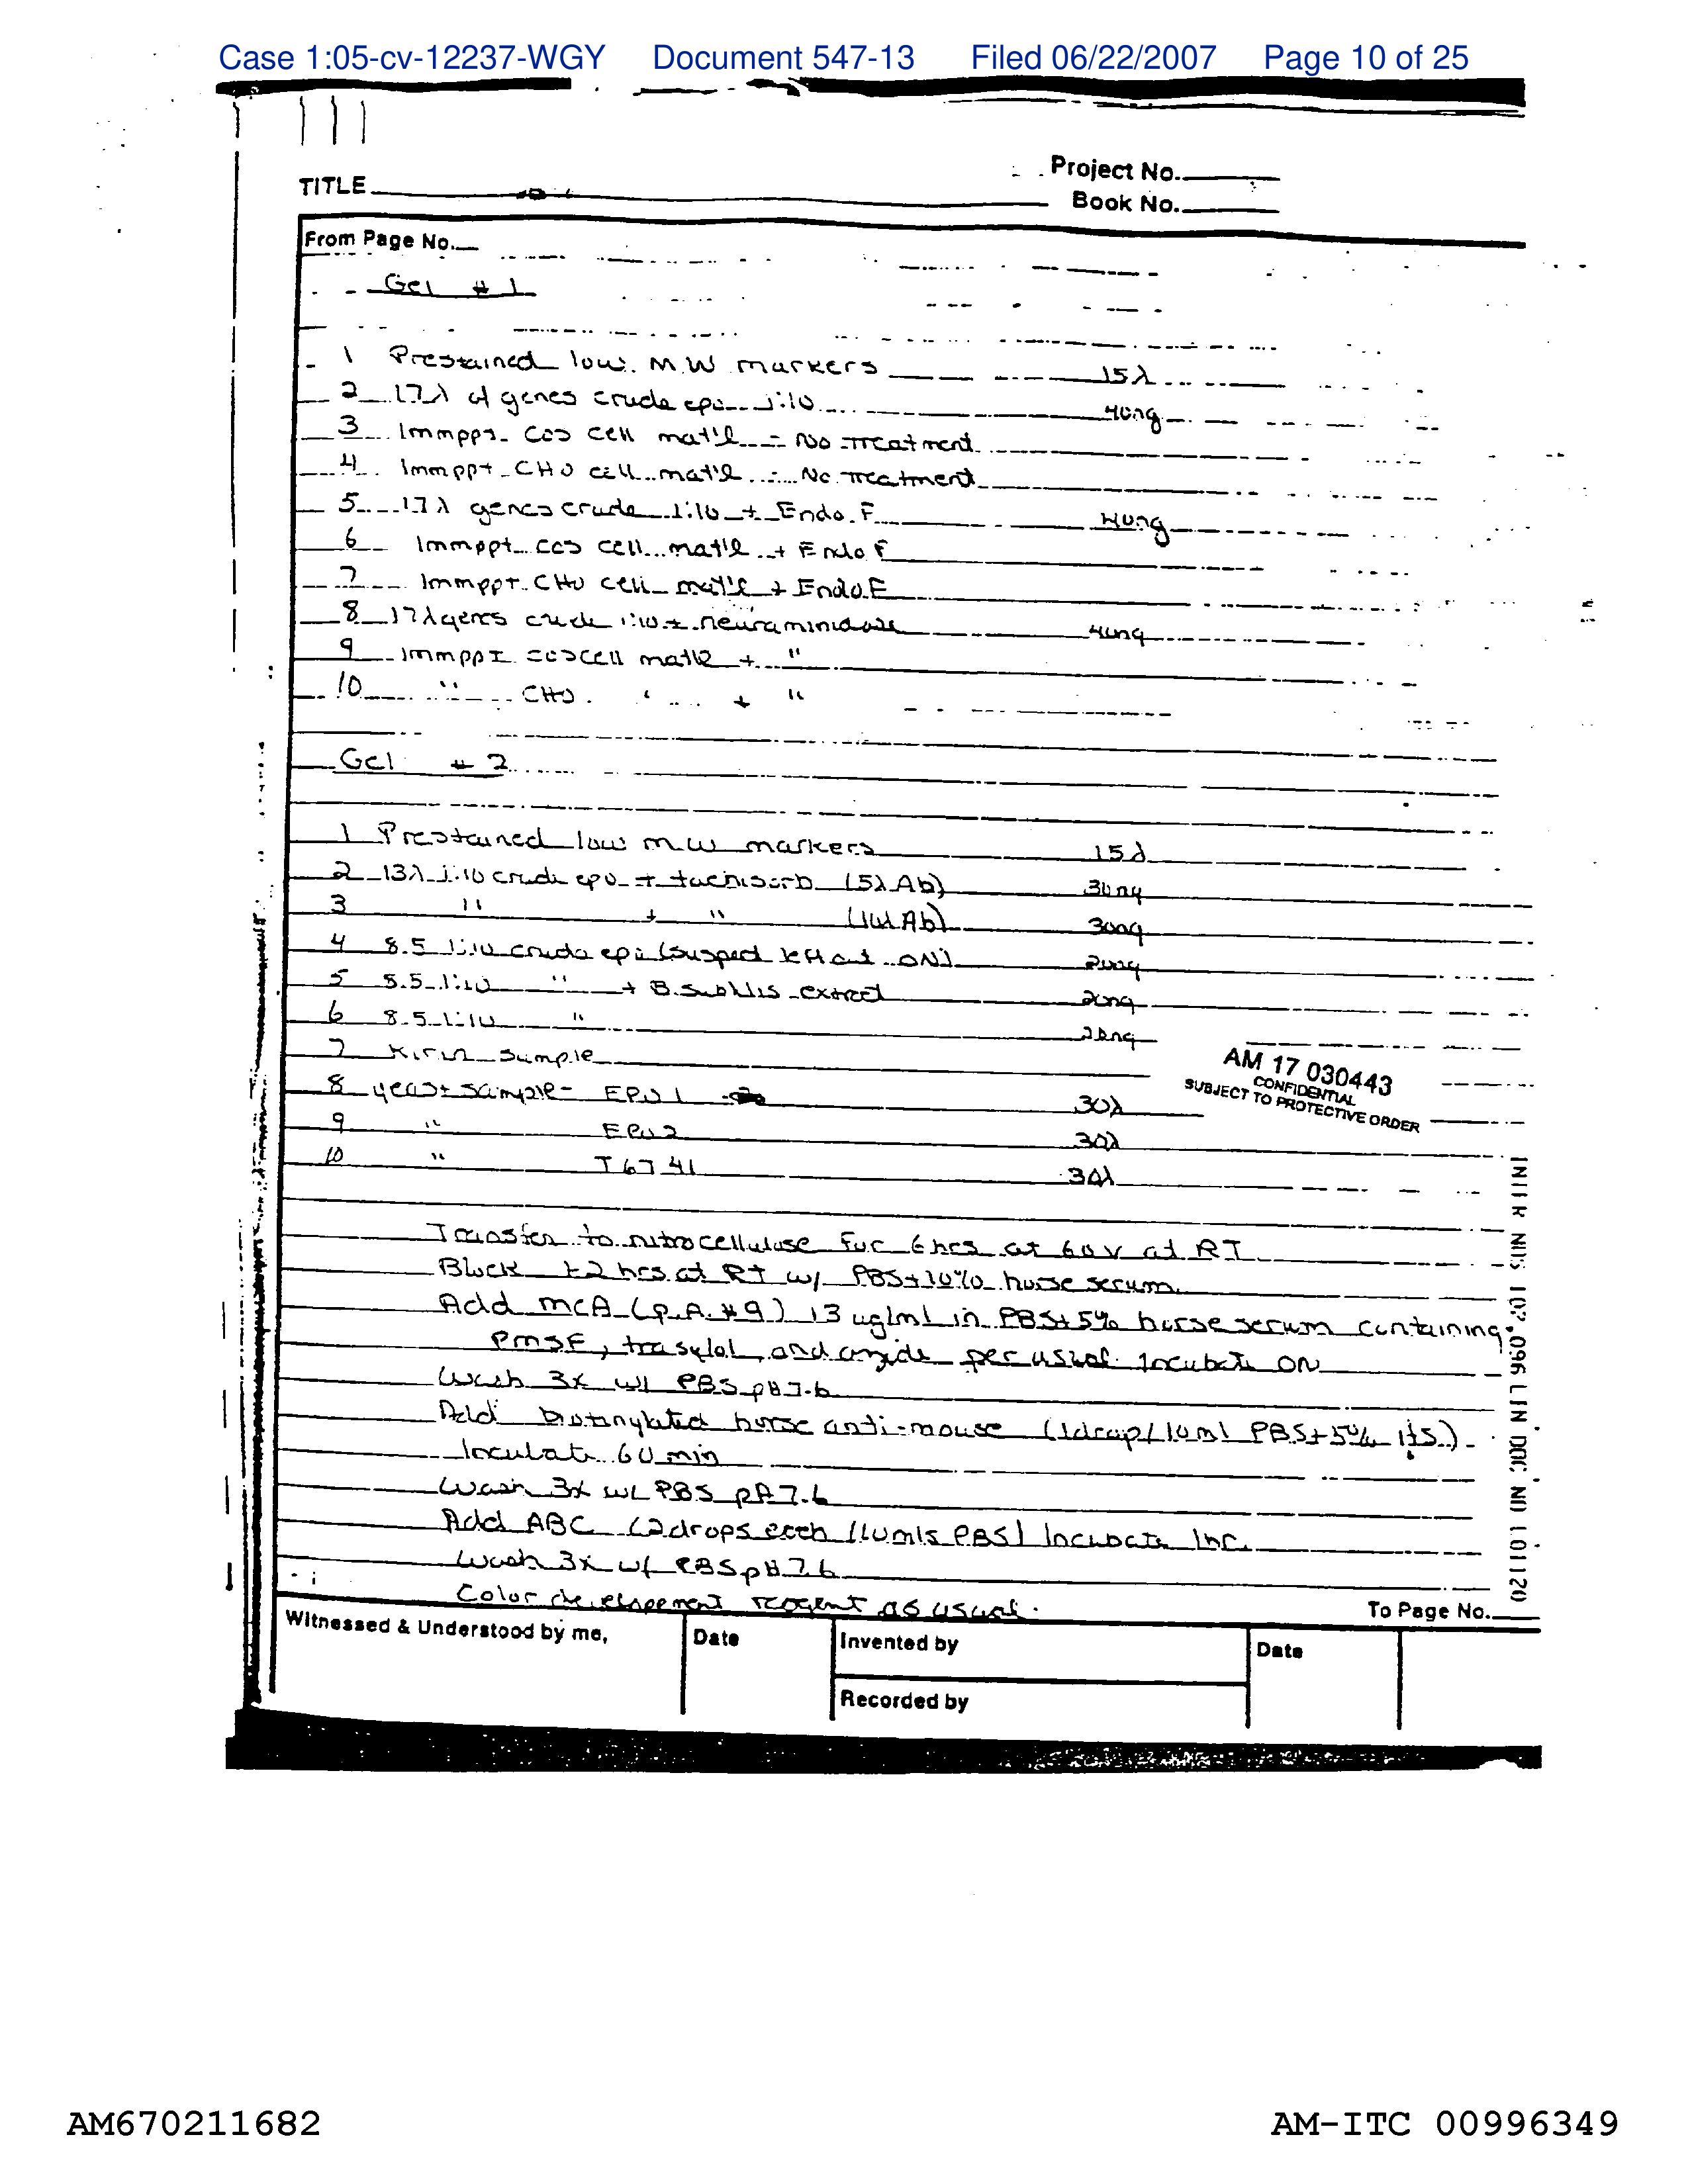 Case 1:05-cv-12237-WGY Document 547-13 Filed 06/22/2007 Page 10 of 25
111
Project No.
TITLE
Book No.
From Page No.
Gel # 1
1 Prestained low M.W markers 15λ
2 17λ of genes crude epo 1:10 40ng
3 Immppt Cos cell mat'l - No Treatment
4 Immppt CHO cell mat'l - No Treatment
5 17λ genes crude 1:10 + Endo F 40ng
6 Immppt cos cell mat'l + Endo F
7 Immppt CHO cell mat'l + Endo F
8 17λ genes crude 1:10 + neuraminidase 40ng
9 Immppt cos cell mat'l + "
10 " CHO " + "
Gel # 2
1 Prestained low m.w markers 15λ
2 13λ 1:10 crude epo + tachisorb (5λ Ab) 30ng
3 " + " (10λ Ab) 30ng
4 8.5 1:10 crude epo (suspect left out ON) 20ng
5 8.5 1:10 " + B. subtilis extract 20ng
6 8.5 1:10 " 20ng
7 Kirin sample
8 yeast sample - EPO 1 30λ
9 " EPO 2 30λ
10 " 30λ
AM 17 030443
CONFIDENTIAL
SUBJECT TO PROTECTIVE ORDER
Transfer to nitrocellulose for 6 hrs at 60v at RT
Block 2 hrs at RT w/ PBS + 10% horse serum
Add McA (P.A. #9) 13 ug/ml in PBS + 5% horse serum containing
PMSF, trasylol, and azide per usual. Incubate ON
Wash 3x w/ PBS pH 7.6
Add biotinylated horse anti-mouse (1drop/10ml PBS + 5% HS)
Incubate 60 min
Wash 3x w/ PBS pH 7.6
Add ABC (2 drops each /10mls PBS) Incubate 1hr.
Wash 3x w/ PBS pH 7.6
Color developement reagent as usual.
To Page No.
Witnessed & Understood by me, Date Invented by Date
Recorded by
AM670211682 AM-ITC 00996349